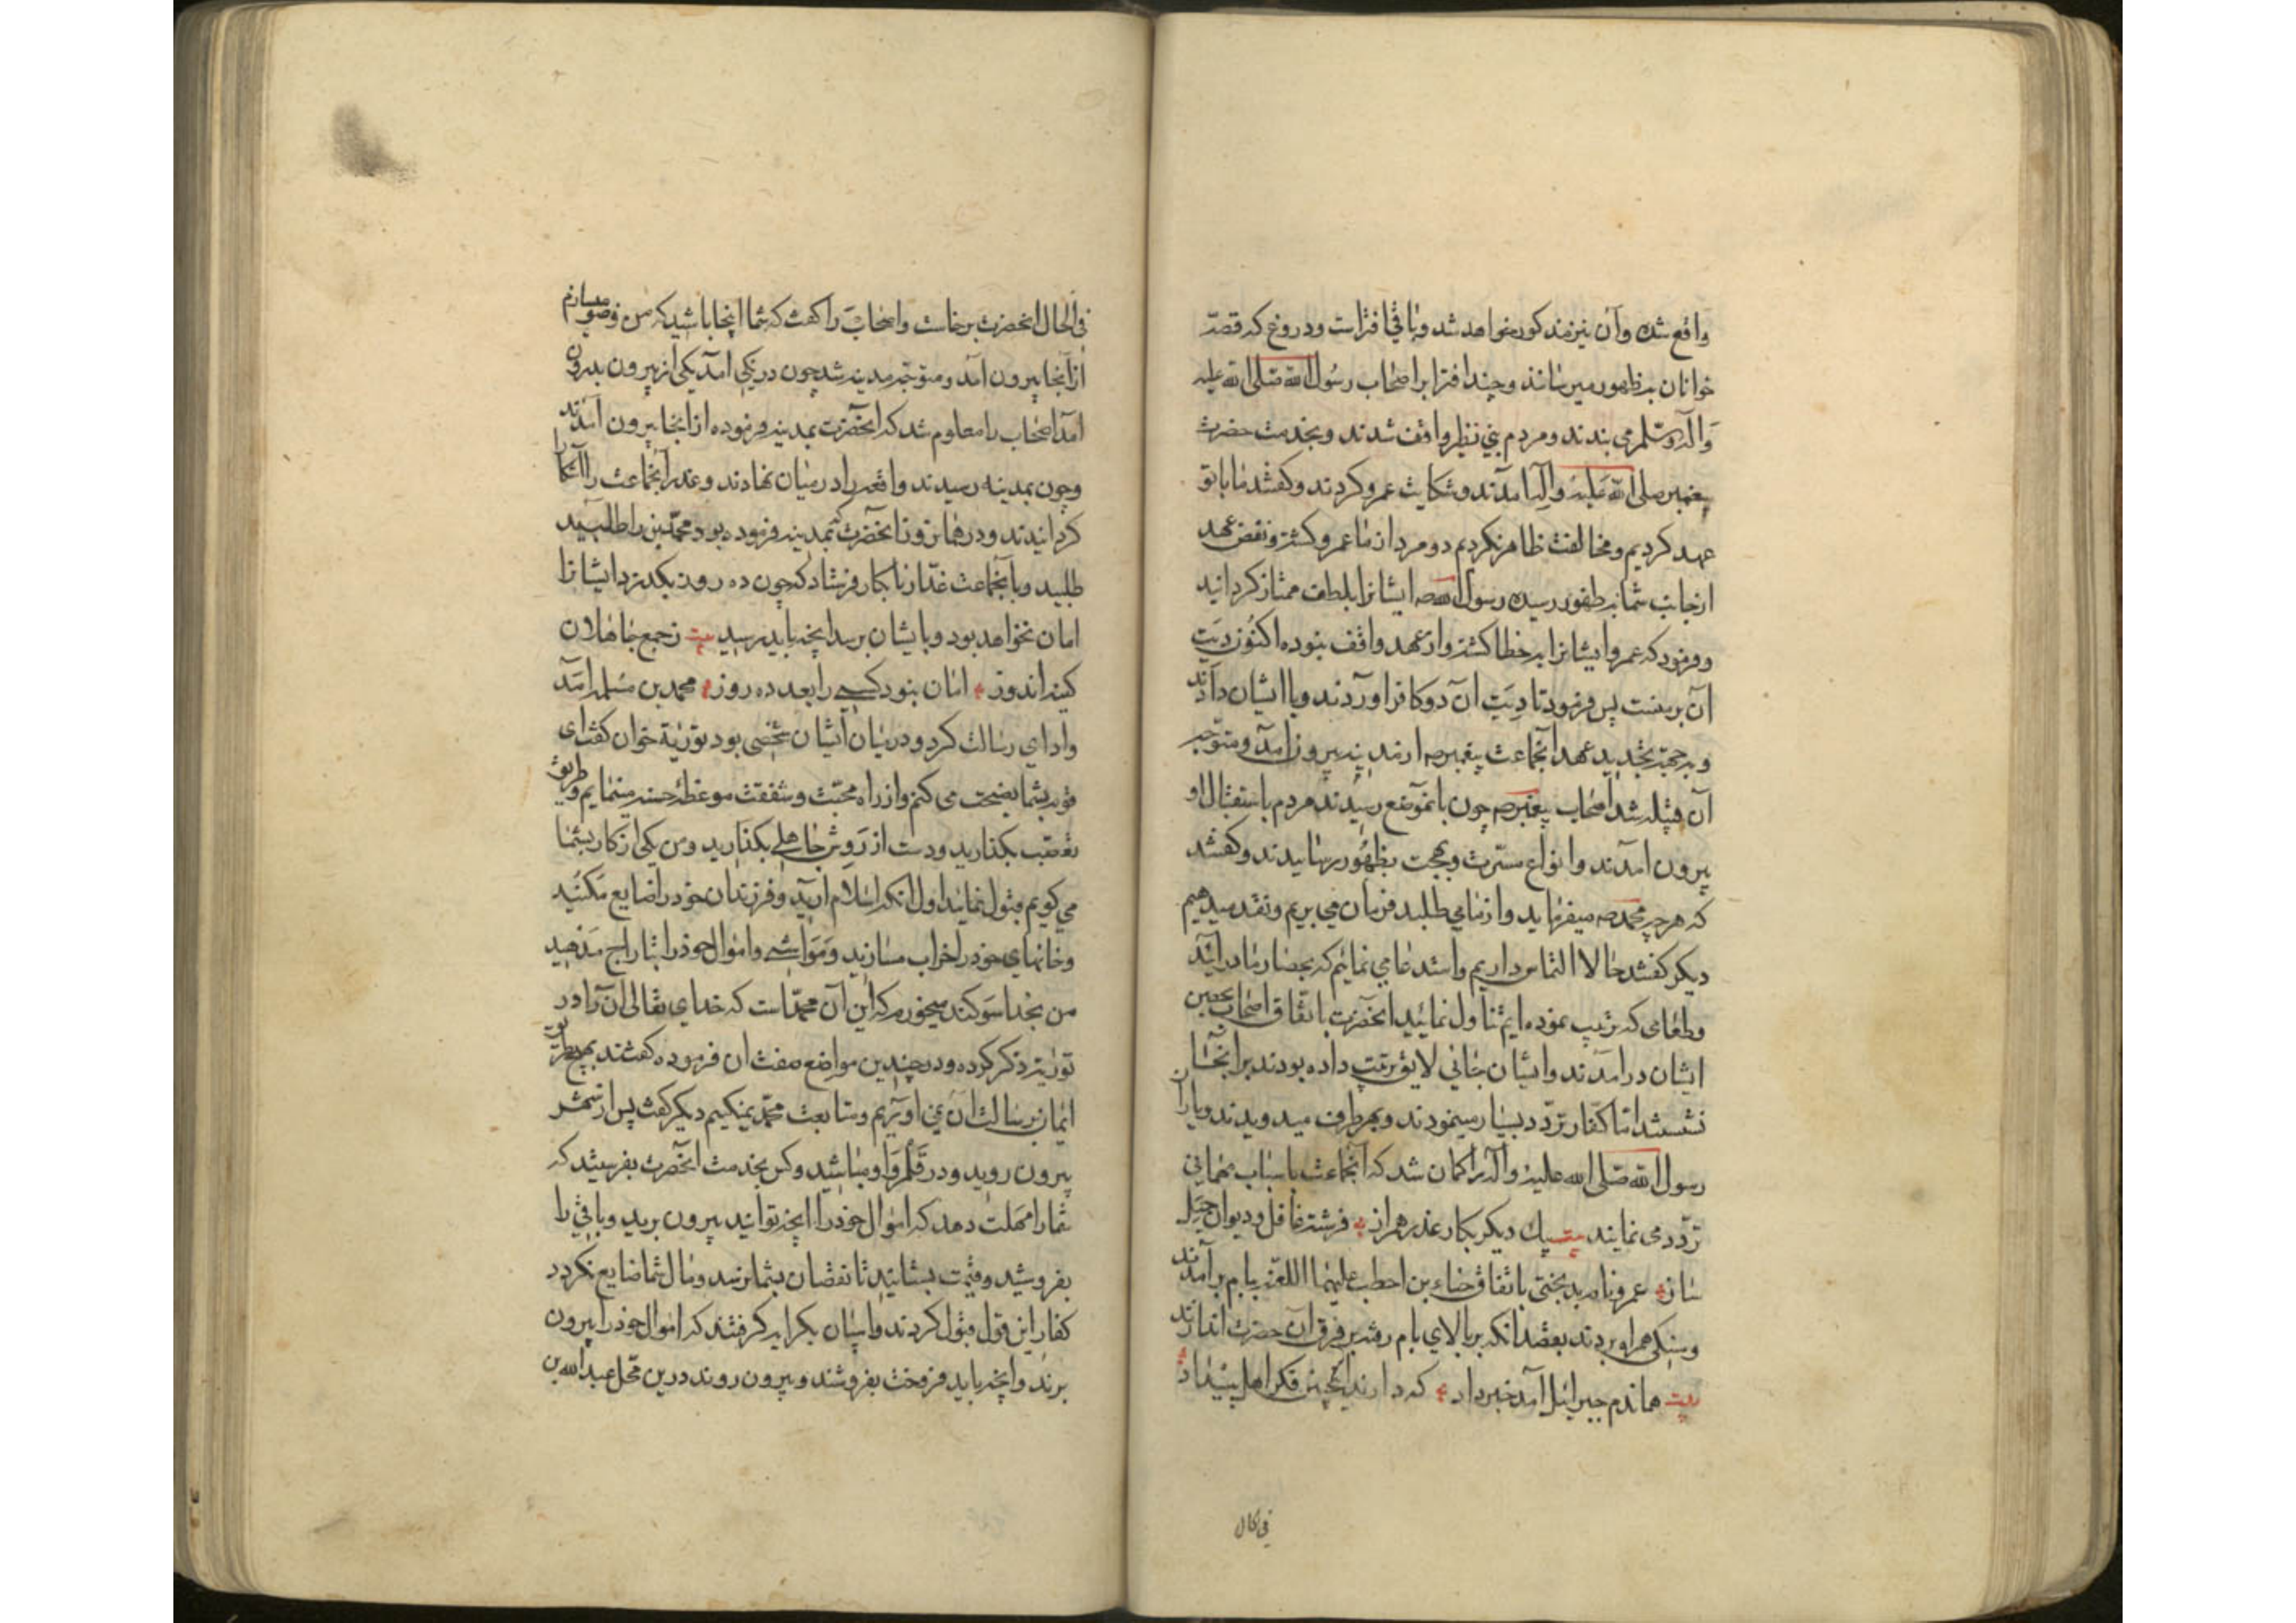 واقع شده وآن نیز مذکور خواهد شد وباقی افتراست ودروغ که قصه
خوانان بظهور میرسانند وچند افترا بر اصحاب رسول الله صلی الله علیه
وآله وسلم می بندند ومردم بنی نظیر واقف شدند وبخدمت حضرت
پیغمبر صلی الله علیه وآله آمدند وشکایت عمرو کردند وکفتند ما با تو
عهد کردیم ومخالفت ظاهر نکردیم دو مرد از ما عمرو کشته ونقض عهد
از جانب شما بظهور رسیده رسول الله صه ایشانرا بلطف ممتاز کردانید
وفرمود که عمرو ایشانرا بخطا کشته واز عهد واقف نبوده اکنون دیت
آن بر منست پس فرمود تا دیت آن دو کافر اوردند وبا ایشان دادند
وبجهة تجدید عهد آنجماعت پیغمبر صه از مدینه بیرون آمد ومتوجه
آن قبیله شد اصحاب پیغمبر صه چون بانموضع رسیدند مردم باستقبال او
بیرون آمدند وانواع مسرت وبهجت بظهور رسانیدند وکفتند
که هر چه محمد صه میفرماید واز ما می طلبد فرمان می بریم ونقد میدهیم
دیکر کفتند حالا التماس داریم واستدعا می نمائیم که بحصار ما درائید
وطعامی که ترتیب نموده ایم تناول نمائید انحضرت باتفاق اصحاب بحصن
ایشان درامدند وایشان جائی لایق ترتیب داده بودند برانجا
نشستند اما کفار تردد بسیار مینمودند وبهر طرف میدویدند ویاران
رسول الله صلی الله علیه وآله را کمان شد که آنجماعت باسباب مهمانی
تردد می نمایند بیت لیک دیکر بکار غدر همراز فرشته غافل ودیوان حیله
ساز عمرو نامه بدبختی باتفاق حیاء بن احطب علیهما اللعنه ببام برآمدند
وسنکی همراه بردند بقصد انکه بر بالای بام رفته بر فرق آن حضرت اندازند
بیت هماندم جبرائیل آمد خبر داد که دارند اینچنین فکر اهل بیداد
فی الحال
فی الحال انحضرت برخاست واصحاب را کفت که شما اینجا باشید که من وضو میسازم
از آنجا بیرون آمد ومتوجه مدینه شد چون دیری آمد یکی از بیرون بدرون
آمد اصحاب را معلوم شد که انحضرت بمدینه فرموده از انجا بیرون آمدند
وچون بمدینه رسیدند واقعه را در میان نهادند وغدر آنجماعت را آشکارا
کردانیدند ودر همانروز که انحضرت بمدینه فرموده بود محمد بن را طلبید
طلبید وبا آنجماعت غدار نابکار فرستاد که چون ده روز بکذرد ایشانرا
امان نخواهد بود وبایشان برسد انچه باید رسید بیت ز جمع جاهلان
کینه اندوز امان نبود کسی را بعد ده روز محمد بن مسلمه آمد
وادای رسالت کرد ودر میان ایشان شخصی بود توریة خوان کفت ای
قوم بشما نصیحت می کنم واز راه محبت وشفقت موعظه حسنه مینمایم طریق
تعصب بکذارید ودست از روش جاهلی بکذارید ومن یکی از کار بشما
می کویم قبول نمائید اول انکه اسلام آرید وفرزندان خود را ضایع مکنید
وخانهای خود را خراب مسازید ومواشی واموال خود را بتاراج مدهید
من بخدا سوکند میخورم که این آن محمد است که خدای تعالی آن را در
توریة ذکر کرده ودر چندین مواضع صفت ان فرموده کفتند بهیچ طریق
ایمان برسالت ان نمی آوریم ومتابعت محمد نمیکنیم دیکر کفت پس از شهر
بیرون روید ودر قلمرو او مباشید وکس بخدمت انحضرت بفرستید که
شما را مهلت دهد که اموال خود را انچه توانید بیرون برید وباقی را
بفروشید وقیمت بستانید تا نقصان بشما نرسد ومال شما ضایع نکردد
کفار این قول قبول کردند واسبان بکرایه کرفتند که اموال خود را بیرون
برند وانچه باید فروخت بفروشند وبیرون روند درین محل عبدالله بن